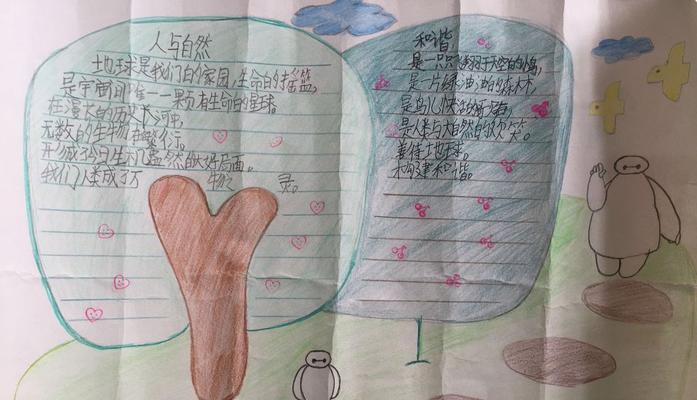 人与自然
地球是我们的家园,生命的摇篮,
是宇宙间唯一一颗有生命的星球。
在漫长的历史长河中,
无数的生物在繁衍。
形成今日生机盎然的大好局面。
我们人类成了万 物之 灵。
和谐
是一只 天空的小鸟,
是一片绿油油的森林,
是鸟儿快活的
是人类与大自然的欢笑。
善待地球。
构建和谐。